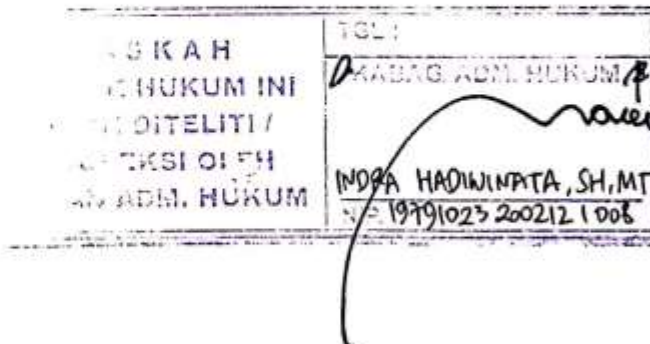 HUKUM INI
DITELITI /
OLEH
ADM. HUKUM
TGL :
KABAG. ADM. HUKUM
INDRA HADIWINATA, SH, MT
NIP. 19791023 200212 1 008